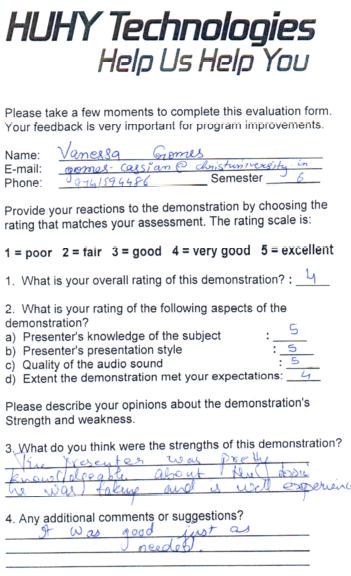 HUHY Technologies
Help Us Help You
Please take a few moments to complete this evaluation form.
Your feedback is very important for program improvements.
Name: Vanessa Gomes
E-mail: gomes.cassian@christuniversity.in
Phone: Semester 6
Provide your reactions to the demonstration by choosing the
rating that matches your assessment. The rating scale is:
1 = poor 2 = fair 3 = good 4 = very good 5 = excellent
1. What is your overall rating of this demonstration? : 4
2. What is your rating of the following aspects of the
demonstration?
a) Presenter's knowledge of the subject : 5
b) Presenter's presentation style : 5
c) Quality of the audio sound : 5
d) Extent the demonstration met your expectations: 4
Please describe your opinions about the demonstration's
Strength and weakness.
3. What do you think were the strengths of this demonstration?
The Presenter was pretty
knowledgeable about the
he was taking and is well
4. Any additional comments or suggestions?
It was good just as
needed.